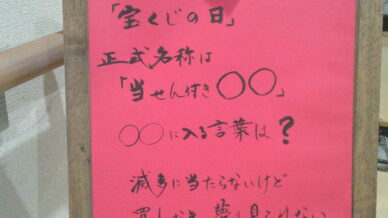 「宝くじの日」
正式名称は
「当せん付き○○」
○○に入る言葉は?
滅多に当たらないけど
買わなきゃ夢も見られない